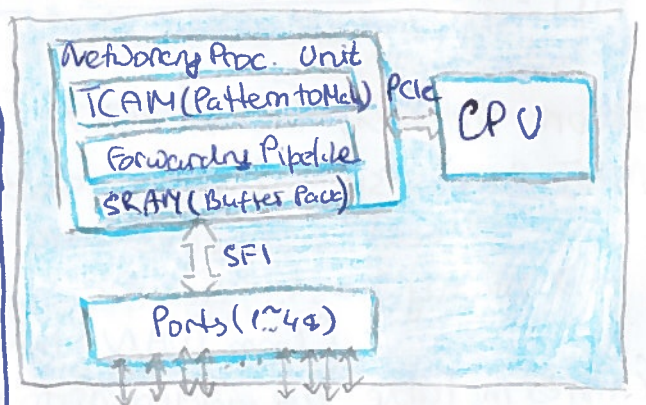 Networkng Proc. Unit
TCAM (Pattern to Mat)
PCIe
CPU
Forwarding Pipeline
SRAM (Buffer Pack)
SFI
Ports (1~48)
...